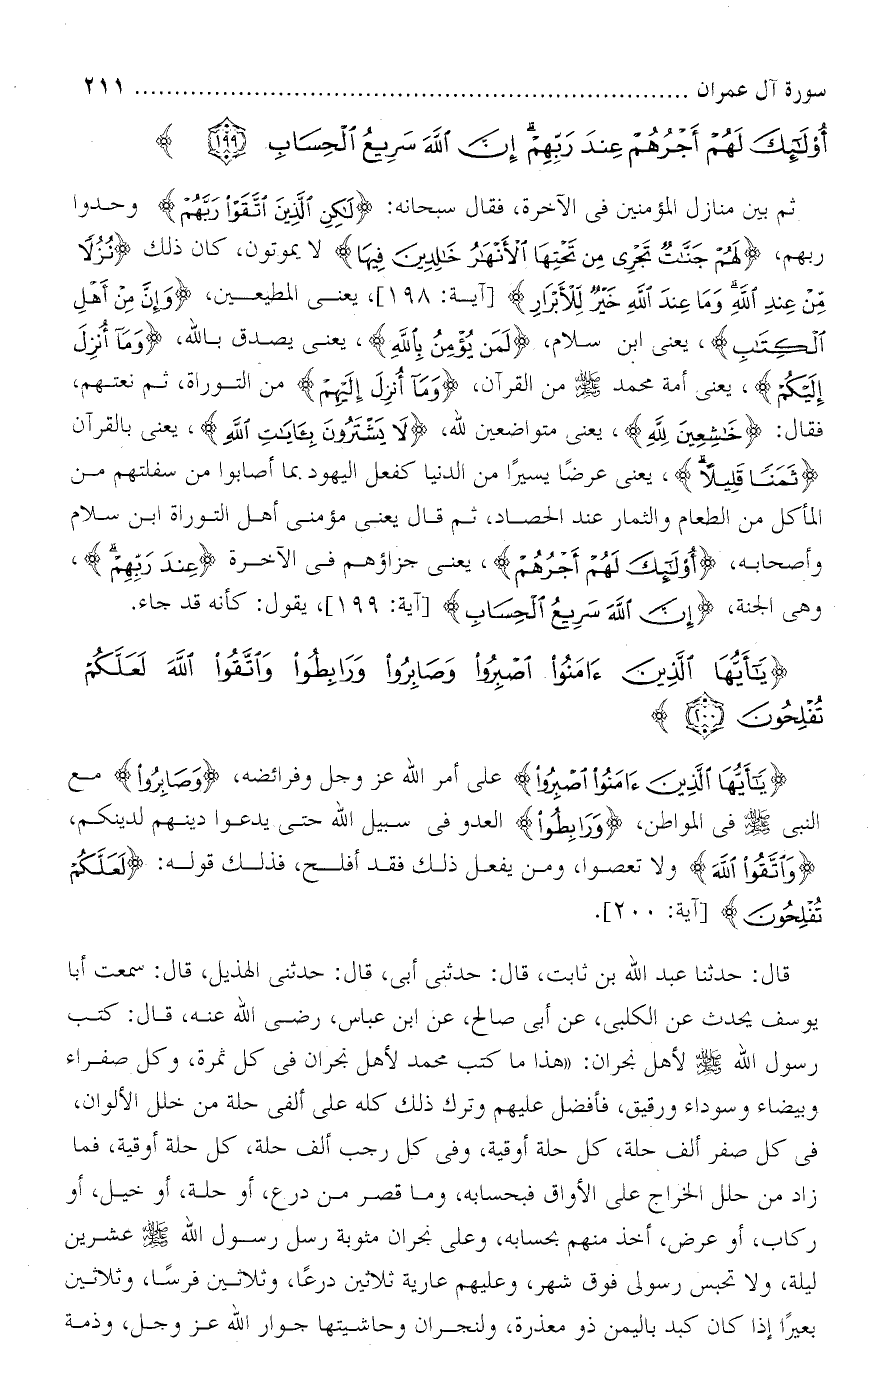 سورة آل عمران ..................................................................... ٢١١
أُوْلَٰٓئِكَ لَهُمۡ أَجۡرُهُمۡ عِندَ رَبِّهِمۡۗ إِنَّ ٱللَّهَ سَرِيعُ ٱلۡحِسَابِ ﴿١٩٩﴾ ﴾
ثم بين منازل المؤمنين فى الآخرة، فقال سبحانه: ﴿لَٰكِنِ ٱلَّذِينَ ٱتَّقَوۡاْ رَبَّهُمۡ﴾ وحدوا
ربهم، ﴿لَهُمۡ جَنَّٰتٞ تَجۡرِي مِن تَحۡتِهَا ٱلۡأَنۡهَٰرُ خَٰلِدِينَ فِيهَا﴾ لا يموتون، كان ذلك ﴿نُزُلٗا
مِّنۡ عِندِ ٱللَّهِۗ وَمَا عِندَ ٱللَّهِ خَيۡرٞ لِّلۡأَبۡرَارِ﴾ [آية: ١٩٨]، يعنى المطيعين، ﴿وَإِنَّ مِنۡ أَهۡلِ
ٱلۡكِتَٰبِ﴾، يعنى ابن سلام، ﴿لَمَن يُؤۡمِنُ بِٱللَّهِ﴾، يعنى يصدق بالله، ﴿وَمَآ أُنزِلَ
إِلَيۡكُمۡ﴾، يعنى أمة محمد ﷺ من القرآن، ﴿وَمَآ أُنزِلَ إِلَيۡهِمۡ﴾ من التوراة، ثم نعتهم،
فقال: ﴿خَٰشِعِينَ لِلَّهِ﴾، يعنى متواضعين لله، ﴿لَا يَشۡتَرُونَ بِـَٔايَٰتِ ٱللَّهِ﴾، يعنى بالقرآن
﴿ثَمَنٗا قَلِيلًاۚ﴾، يعنى عرضًا يسيرًا من الدنيا كفعل اليهود بما أصابوا من سفلتهم من
المأكل من الطعام والثمار عند الحصاد، ثم قال يعنى مؤمنى أهل التوراة ابن سلام
وأصحابه، ﴿أُوْلَٰٓئِكَ لَهُمۡ أَجۡرُهُمۡ﴾، يعنى جزاؤهم فى الآخرة ﴿عِندَ رَبِّهِمۡۗ﴾،
وهى الجنة، ﴿إِنَّ ٱللَّهَ سَرِيعُ ٱلۡحِسَابِ﴾ [آية: ١٩٩]، يقول: كأنه قد جاء.
﴿يَٰٓأَيُّهَا ٱلَّذِينَ ءَامَنُواْ ٱصۡبِرُواْ وَصَابِرُواْ وَرَابِطُواْ وَٱتَّقُواْ ٱللَّهَ لَعَلَّكُمۡ
تُفۡلِحُونَ ﴿٢٠٠﴾ ﴾
﴿يَٰٓأَيُّهَا ٱلَّذِينَ ءَامَنُواْ ٱصۡبِرُواْ﴾ على أمر الله عز وجل وفرائضه، ﴿وَصَابِرُواْ﴾ مع
النبى ﷺ فى المواطن، ﴿وَرَابِطُواْ﴾ العدو فى سبيل الله حتى يدعوا دينهم لدينكم،
﴿وَٱتَّقُواْ ٱللَّهَ﴾ ولا تعصوا، ومن يفعل ذلك فقد أفلح، فذلك قوله: ﴿لَعَلَّكُمۡ
تُفۡلِحُونَ﴾ [آية: ٢٠٠].
قال: حدثنا عبد الله بن ثابت، قال: حدثنى أبى، قال: حدثنى الهذيل، قال: سمعت أبا
يوسف يحدث عن الكلبى، عن أبى صالح، عن ابن عباس، رضى الله عنه، قال: كتب
رسول الله ﷺ لأهل نجران: «هذا ما كتب محمد لأهل نجران فى كل ثمرة، وكل صفراء
وبيضاء وسوداء ورقيق، فأفضل عليهم وترك ذلك كله على ألفى حلة من حلل الألوان،
فى كل صفر ألف حلة، كل حلة أوقية، وفى كل رجب ألف حلة، كل حلة أوقية، فما
زاد من حلل الخراج على الأواق فبحسابه، وما قصر من درع، أو حلة، أو خيل، أو
ركاب، أو عرض، أخذ منهم بحسابه، وعلى نجران مثوبة رسل رسول الله ﷺ عشرين
ليلة، ولا تحبس رسولى فوق شهر، وعليهم عارية ثلاثين درعًا، وثلاثين فرسًا، وثلاثين
بعيرًا إذا كان كبد باليمن ذو معذرة، ولنجران وحاشيتها جوار الله عز وجل، وذمة